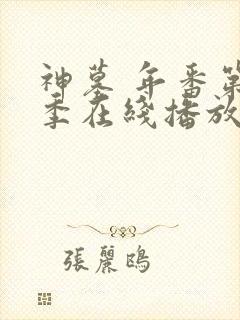 神墓 年番第
季在綫播放
張麗鴎